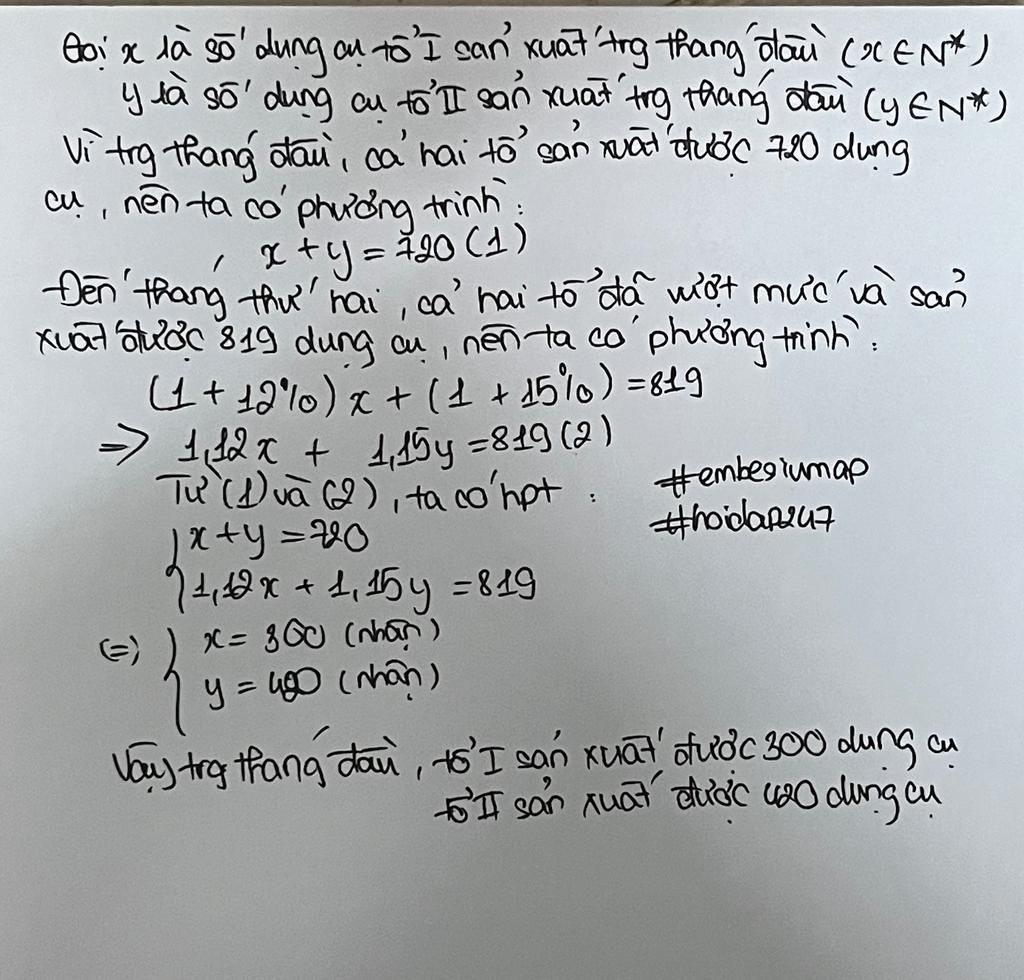 Gọi x là số dụng cụ tổ I sản xuất trg tháng đầu (x ∈ N*)
y là số dụng cụ tổ II sản xuất trg tháng đầu (y ∈ N*)
Vì trg tháng đầu, cả hai tổ sản xuất được 720 dụng
cụ, nên ta có phương trình:
x + y = 720 (1)
Đến tháng thứ hai, cả hai tổ đã vượt mức và sản
xuất được 819 dụng cụ, nên ta có phương trình:
(1 + 12%) x + (1 + 15%) = 819
=> 1,12x + 1,15y = 819 (2)
Từ (1) và (2), ta có hpt:
#embegiumap
#hoidap247
{ x + y = 720
1,12x + 1,15y = 819
(=) { x = 300 (nhận)
y = 420 (nhận)
Vậy trg tháng đầu, tổ I sản xuất được 300 dụng cụ
tổ II sản xuất được 420 dụng cụ